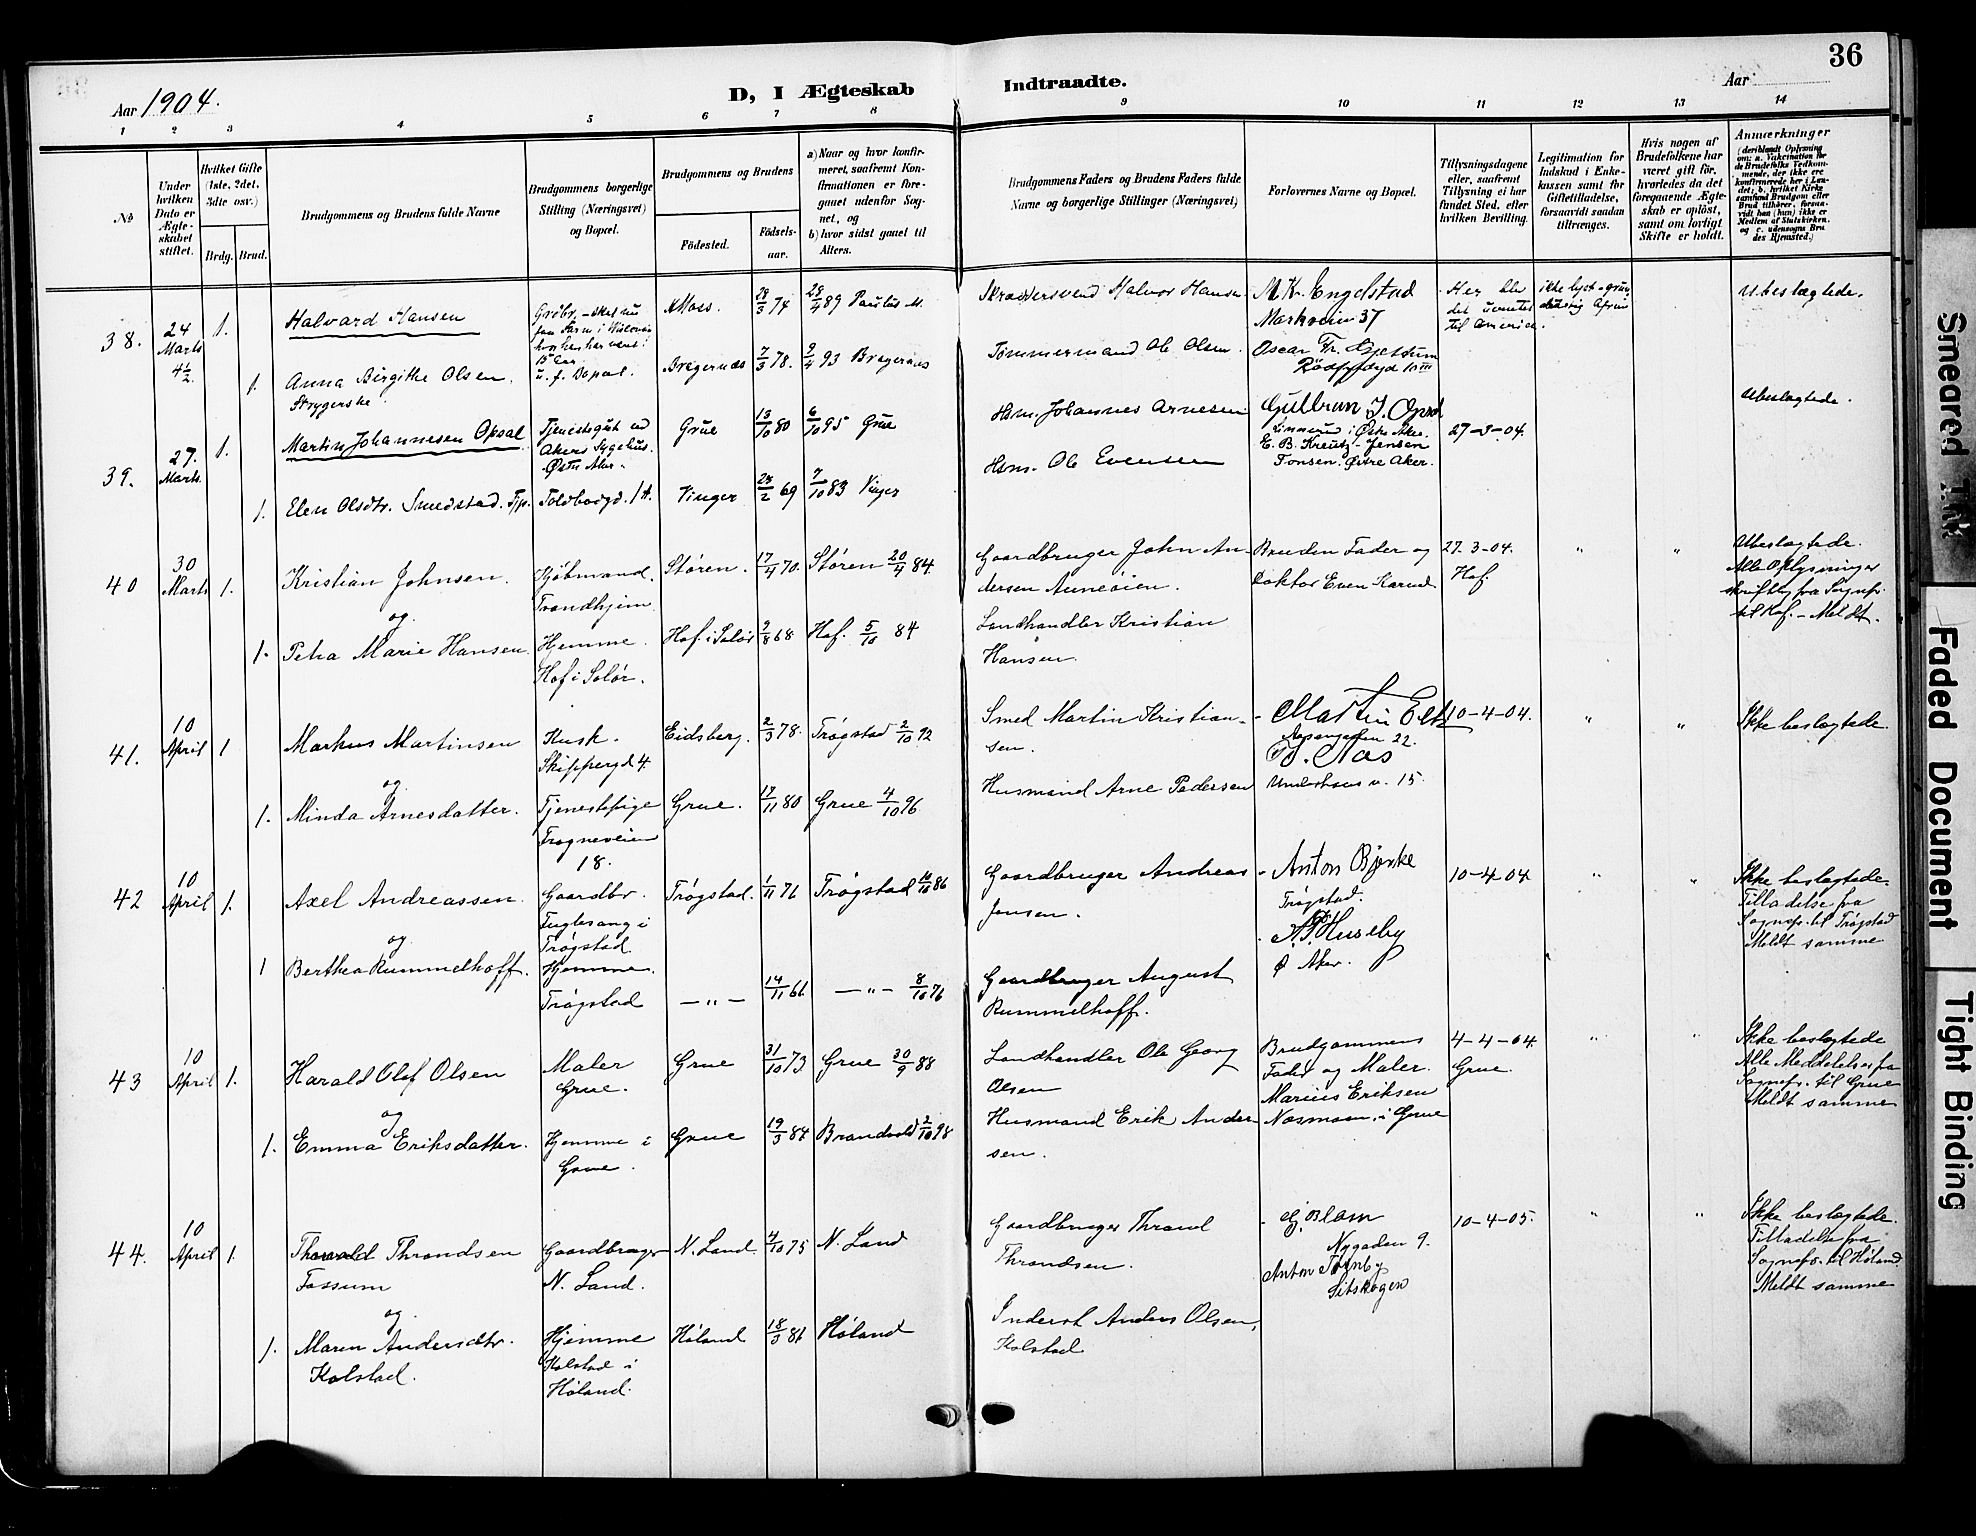 36
Aar 1904.
D, I Ægteskab Indtraadte.
Aar
1 2 3 4 5 6 7 8 9 10 11 12 13 14
No
Under hvilken Dato er Ægte-skabet stiftet.
Hvilket Gifte (1ste, 2det, 3die osv.)
Brdg. Brud.
Brudgommens og Brudens fulde Navne
Brudgommens borgerlige Stilling (Næringsvei) og Bopæl.
Brudgommens og Brudens
Fødested.
Fødsels-aar.
a) Naar og hvor konfir-meret, saafremt Kon-firmationen er fore-gaaet udenfor Sog-net, og
b) hvor sidst gaaet til Alters.
Brudgommens Faders og Brudens Faders fulde Navne og borgerlige Stillinger (Næringsvei)
Forlovernes Navne og Bopæl.
Tillysningsdagene eller, saafremt Tillysning ei har fundet Sted, efter hvilken Bevilling.
Legitimation for Indskud i Enke-kassen samt for Giftetilladelse, forsaavidt saadan tiltrænges.
Hvis nogen af Brudefolkene har været gift før, hvorledes da det foregaaende Ægte-skab er opløst, samt om lovligt Skifte er holdt.
Anmærkninger
38. 24 Marts 4½. 1. Halvard Hansen
Moss. 28/3 74 28/4 89 Paulus M.
Skræddersvend Halvor Hansen
M. K. Engelstad
Markveien 37
til America.
Ubeslægtede.
1. Anna Birgithe Olsen.
Strygerske
Bragernes 7/3 78. 9/4 93 Bragernes
Tømmermand Ole Olsen.
Oscar Fr.
39. 27. Marts. 1. Martin Johannesen Opsal
Tjenestegut ved
Akers Sygehus.
Østre Aker.
Grue 13/10 80 6/10 95 Grue
Hsm. Johannes Arnesen
Gulbran J. Opsal
Linnerud i Østre Aker.
E. B. Kreutz-Jensen
Tonsen. Østre Aker.
27-3-04.
Ubeslægtede.
1. Elen Olsdtr. Smedstad. Tjp.
Toldbodgd. 1A.
Vinger 24/2 69 7/10 83 Vinger
Hsm. Ole Evensen
40 30 Marts 1. Kristian Johnsen.
Kjøbmand.
Trondhjem
Støren. 17/4 70. Støren 20/4 84.
Gaardbruger John An-
dersen Auneøien.
Brudens Fader og
Doktor Even Karud
27.3-04.
Hof.
" "
Ubeslægtede.
Alle Oplysninger
skriftlig fra Sognepr.
til Hof. - Meldt.
og
1. Petra Marie Hansen
Hjemme.
Hof i Solør.
Hof i Solør 9/8 68 Hof. 5/10 84
Landhandler Kristian
Hansen.
41. 10 April 1 Markus Martinsen
Kusk.
Skippergd 4.
Eidsberg. 2/3 78. Trøgstad 2/10 92
Smed Martin Kristian-
sen.
10-4-04.
" "
Ikke beslægtede.
og
1. Minda Arnesdatter.
Tjenestepige
Frogneveien
18.
Grue. 17/11 80 Grue 4/10 96
Husmand Arne Pedersen
42 10 April 1. Axel Andreassen.
Gaardbr.
Fuglesang i
Trøgstad
Trøgstad. 1/11 76 Trøgstad 10/10 86
Gaardbruger Andreas
Jensen.
Anton Bjerke
Trøgstad.
A. P. Huseby
Ø Aker.
10-4-04
" "
Ikke beslægtede.
Tilladelse fra
Sognepr. til Trøgstad
Meldt samme
og
1 Berthea Rummelhoff.
Hjemme.
Trøgstad
— " — 14/11 61. — " — 8/10 76
Gaardbruger August
Rummelhoff.
43 10 April 1. Harald Olef Olsen
Maler
Grue.
Grue 31/10 73 Grue 30/9 88
Landhandler Ole Georg
Olsen
Brudgommens
Fader og Maler
Marius Eriksen
Nosmoen i Grue
4-4-04.
Grue.
" "
Ikke beslægtede
Alle Meddelelser fra
Sognepr. til Grue
Meldt samme
og
1. Emma Eriksdatter.
Hjemme i
Grue.
Grue 19/3 84 Brandvold 2/10 98
Husmand Erik Ander-
sen.
44. 10 April 1. Thorvald Throndsen
Fossum
Gaardbruger
N. Land.
N. Land 4/10 75 N. Land
Gaardbruger Thrond
Throndsen.
Nygaden 9.
Anton
Setskogen
10-4-05.
" "
Ikke beslægtede.
Tilladelse fra
Sognepr. til Høland
Meldt samme
og
1. Maren Andersdtr.
Kolstad.
Hjemme
Kolstad i
Høland.
Høland 18/3 86 Høland
Inderst Anders Olsen,
Kolstad
Smeared Ink
Faded Document
Tight Binding